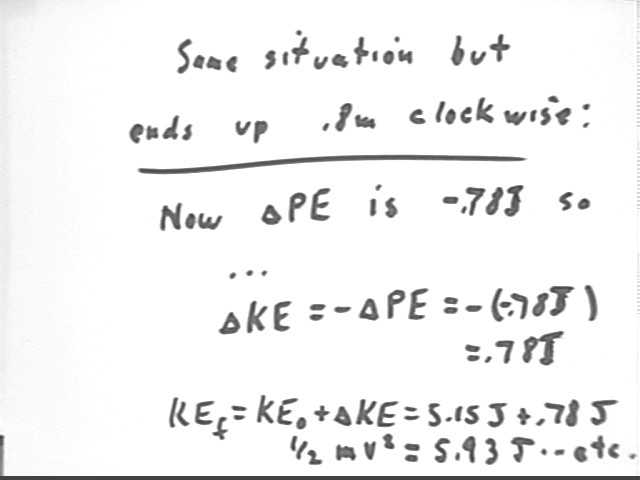 Same situation but
ends up .8m clockwise:
Now ΔPE is -.78J so
...
ΔKE = -ΔPE = -(-.78J)
=.78J
KEf = KE₀ + ΔKE = 5.15 J + .78 J
1/2 mv² = 5.93 J ... etc.